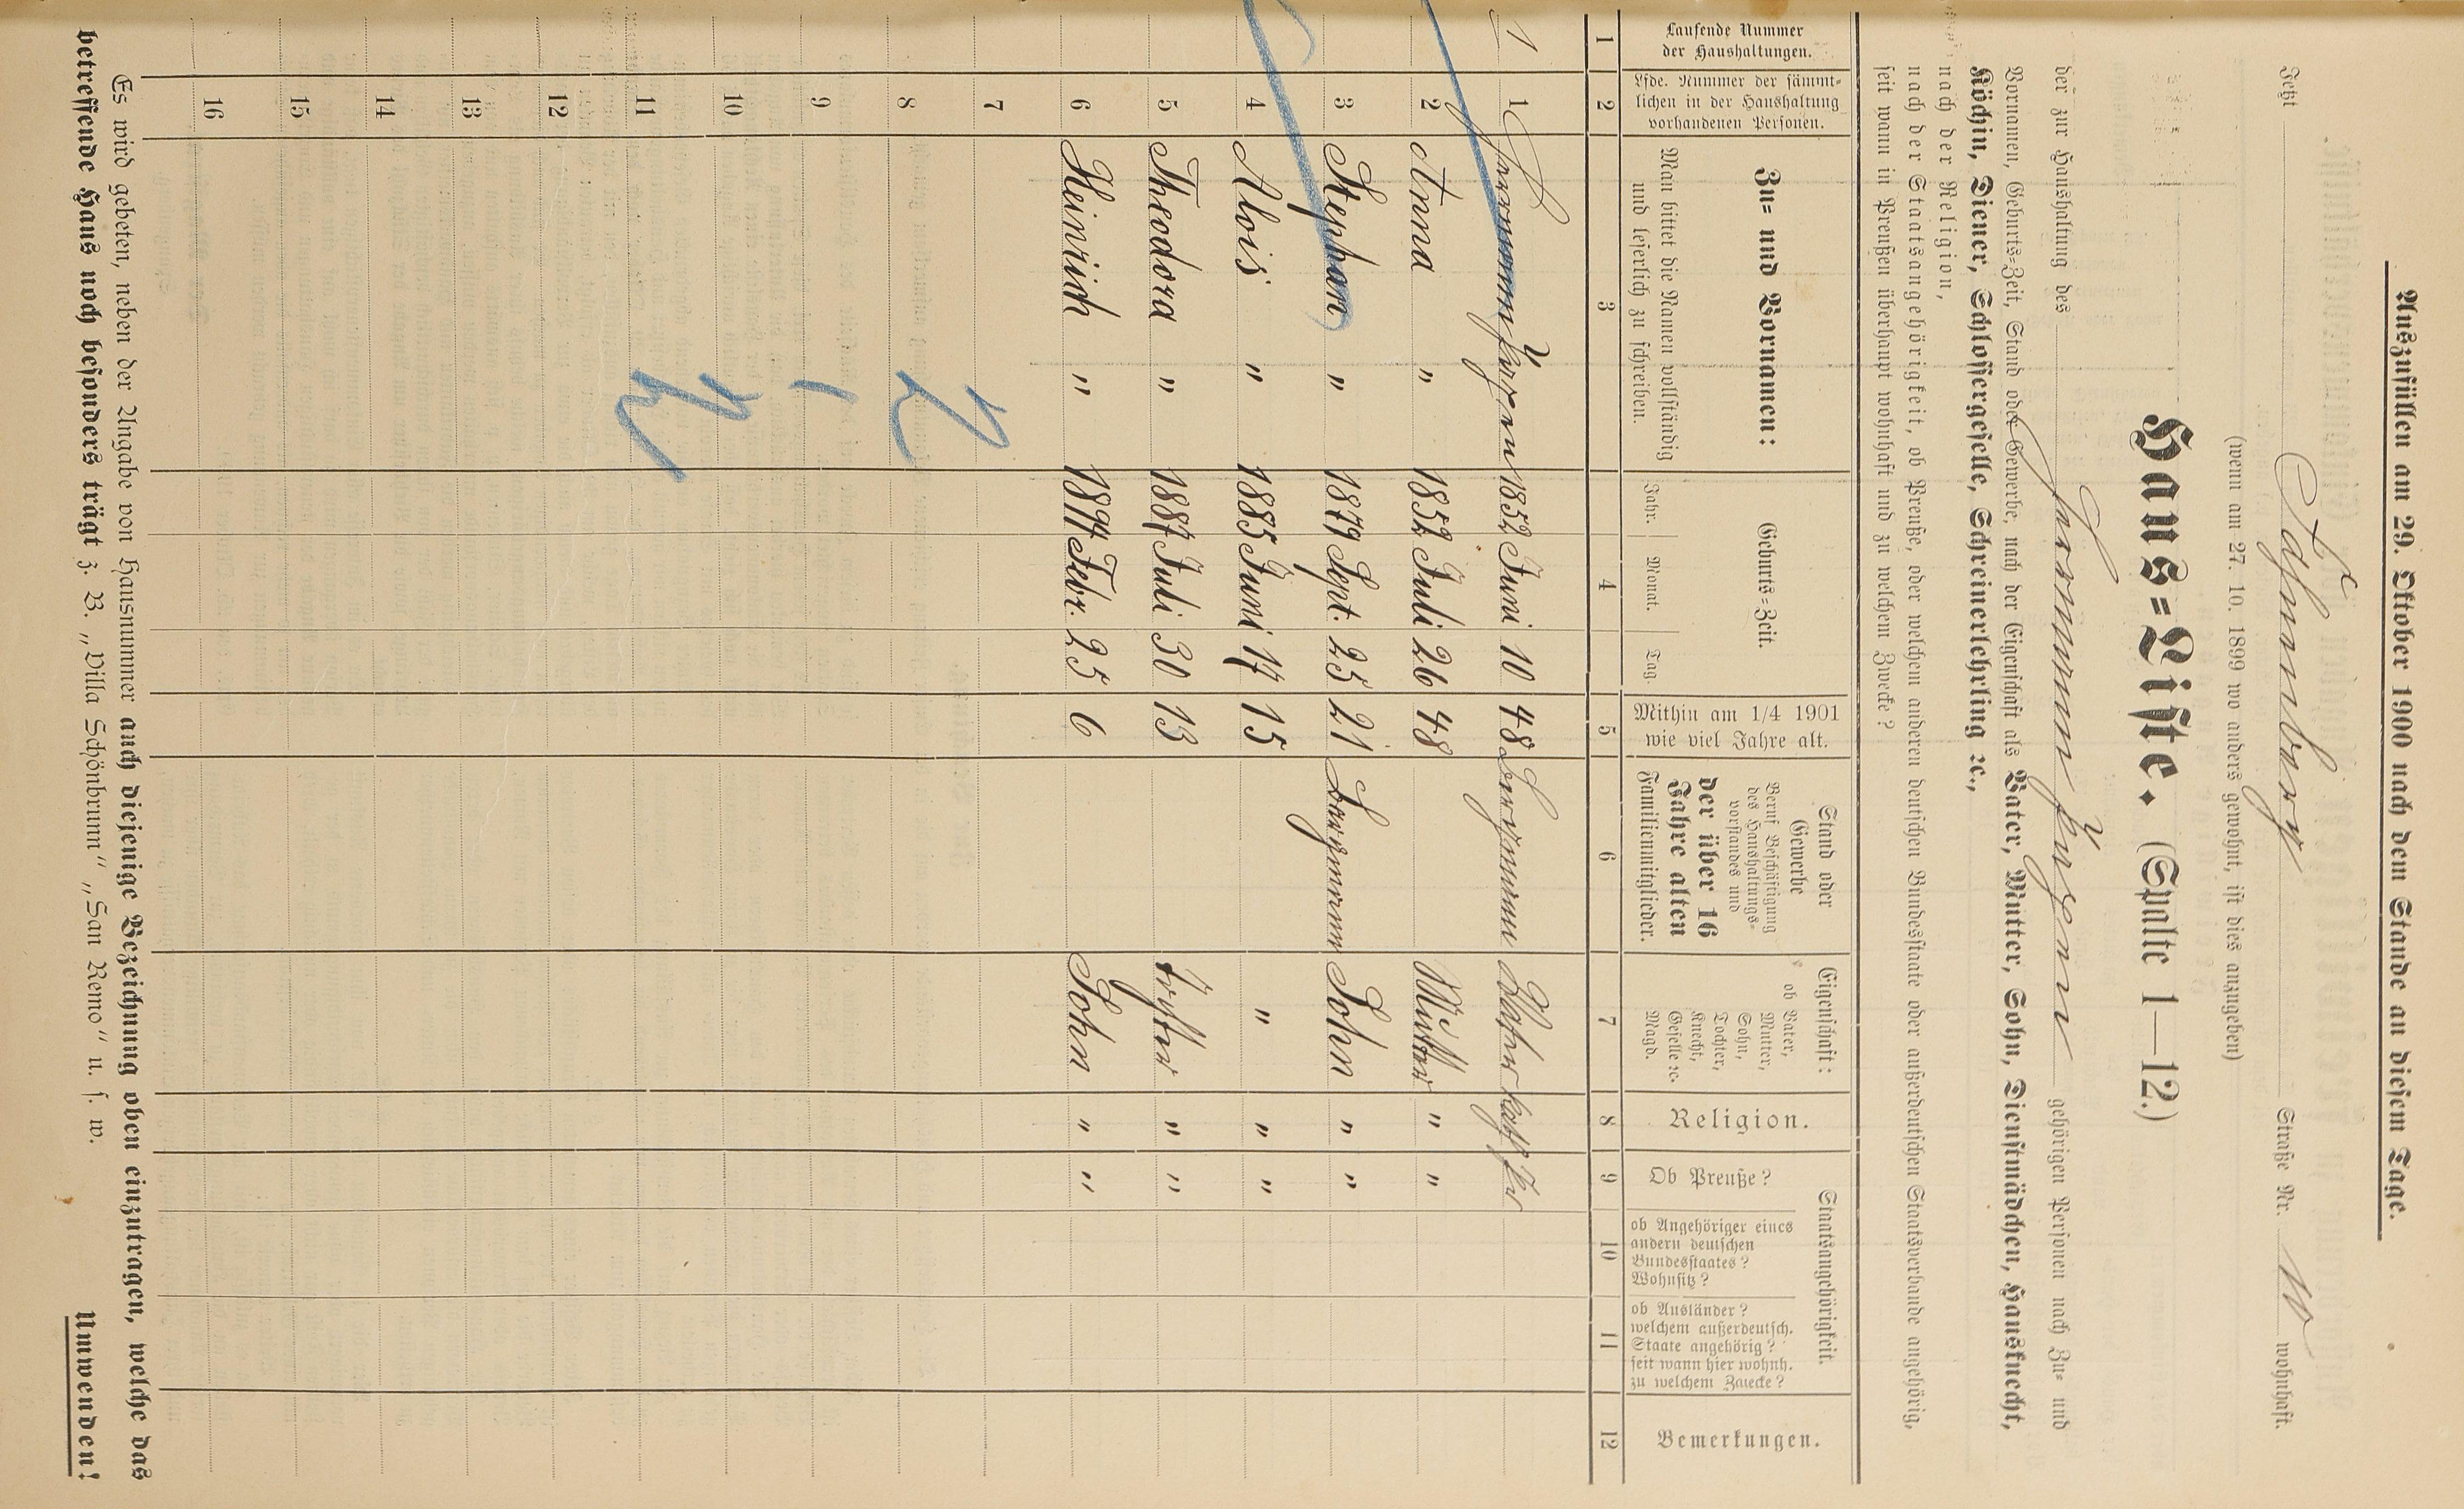 Auszufüllen am 29. Oktober 1900 nach dem Stande an diesem Tage.
Jetzt Straße Nr. 10 wohnhaft.
(wenn am 27. 10. 1899 wo anders gewohnt, ist dies anzugeben)
Haus=Liste. (Spalte 1—12.)
der zur Haushaltung des Hermann Jürgens gehörigen Personen nach Zu= und
Vornamen, Geburts=Zeit, Stand oder Gewerbe, nach der Eigenschaft als Vater, Mutter, Sohn, Dienstmädchen, Hausknecht,
Köchin, Diener, Schlossergeselle, Schreinerlehrling ꝛc.,
nach der Religion,
nach der Staatsangehörigkeit, ob Preuße, oder welchem anderen deutschen Bundesstaate oder außerdeutschen Staatsverbande angehörig,
seit wann in Preußen überhaupt wohnhaft und zu welchem Zwecke?
Laufende Nummer
der Haushaltungen.
Lfde. Nummer der sämmt=
lichen in der Haushaltung
vorhandenen Personen.
Zu= und Vornamen:
Man bittet die Namen vollständig
und leserlich zu schreiben.
Geburts=Zeit.
Jahr. Monat. Tag.
Mithin am 1/4 1901
wie viel Jahre alt.
Stand oder
Gewerbe
Beruf Beschäftigung
des Haushaltungs=
vorstandes und
der über 16
Jahre alten
Familienmitglieder.
Eigenschaft:
ob Vater,
Mutter,
Sohn,
Tochter,
Knecht,
Geselle ꝛc.
Magd.
Religion.
Staatsangehörigkeit.
Ob Preuße?
ob Angehöriger eines
andern deutschen
Bundesstaates?
Wohnsitz?
ob Ausländer?
welchem außerdeutsch.
Staate angehörig?
seit wann hier wohnh.
zu welchem Zwecke?
Bemerkungen.
1 2 3 4 5 6 7 8 9 10 11 12
1 1 Hermann Jürgens 1852 Juni 10 48 Bergmann Vater kath
2 Anna " 1852 Juli 26 48 Mutter " "
3 Stephan " 1879 Sept. 25 21 Bergmann Sohn " "
4 Alois " 1885 Juni 17 15 " " "
5 Theodora " 1887 Juli 30 13 Tochter " "
6 Heinrich " 1894 Febr. 25 6 Sohn " "
7
8
9
10
11
12
13
14
15
16
Es wird gebeten, neben der Angabe von Hausnummer auch diejenige Bezeichnung oben einzutragen, welche das
betreffende Haus noch besonders trägt z. B. „Villa Schönbrunn“ „San Remo“ u. s. w.
Umwenden!